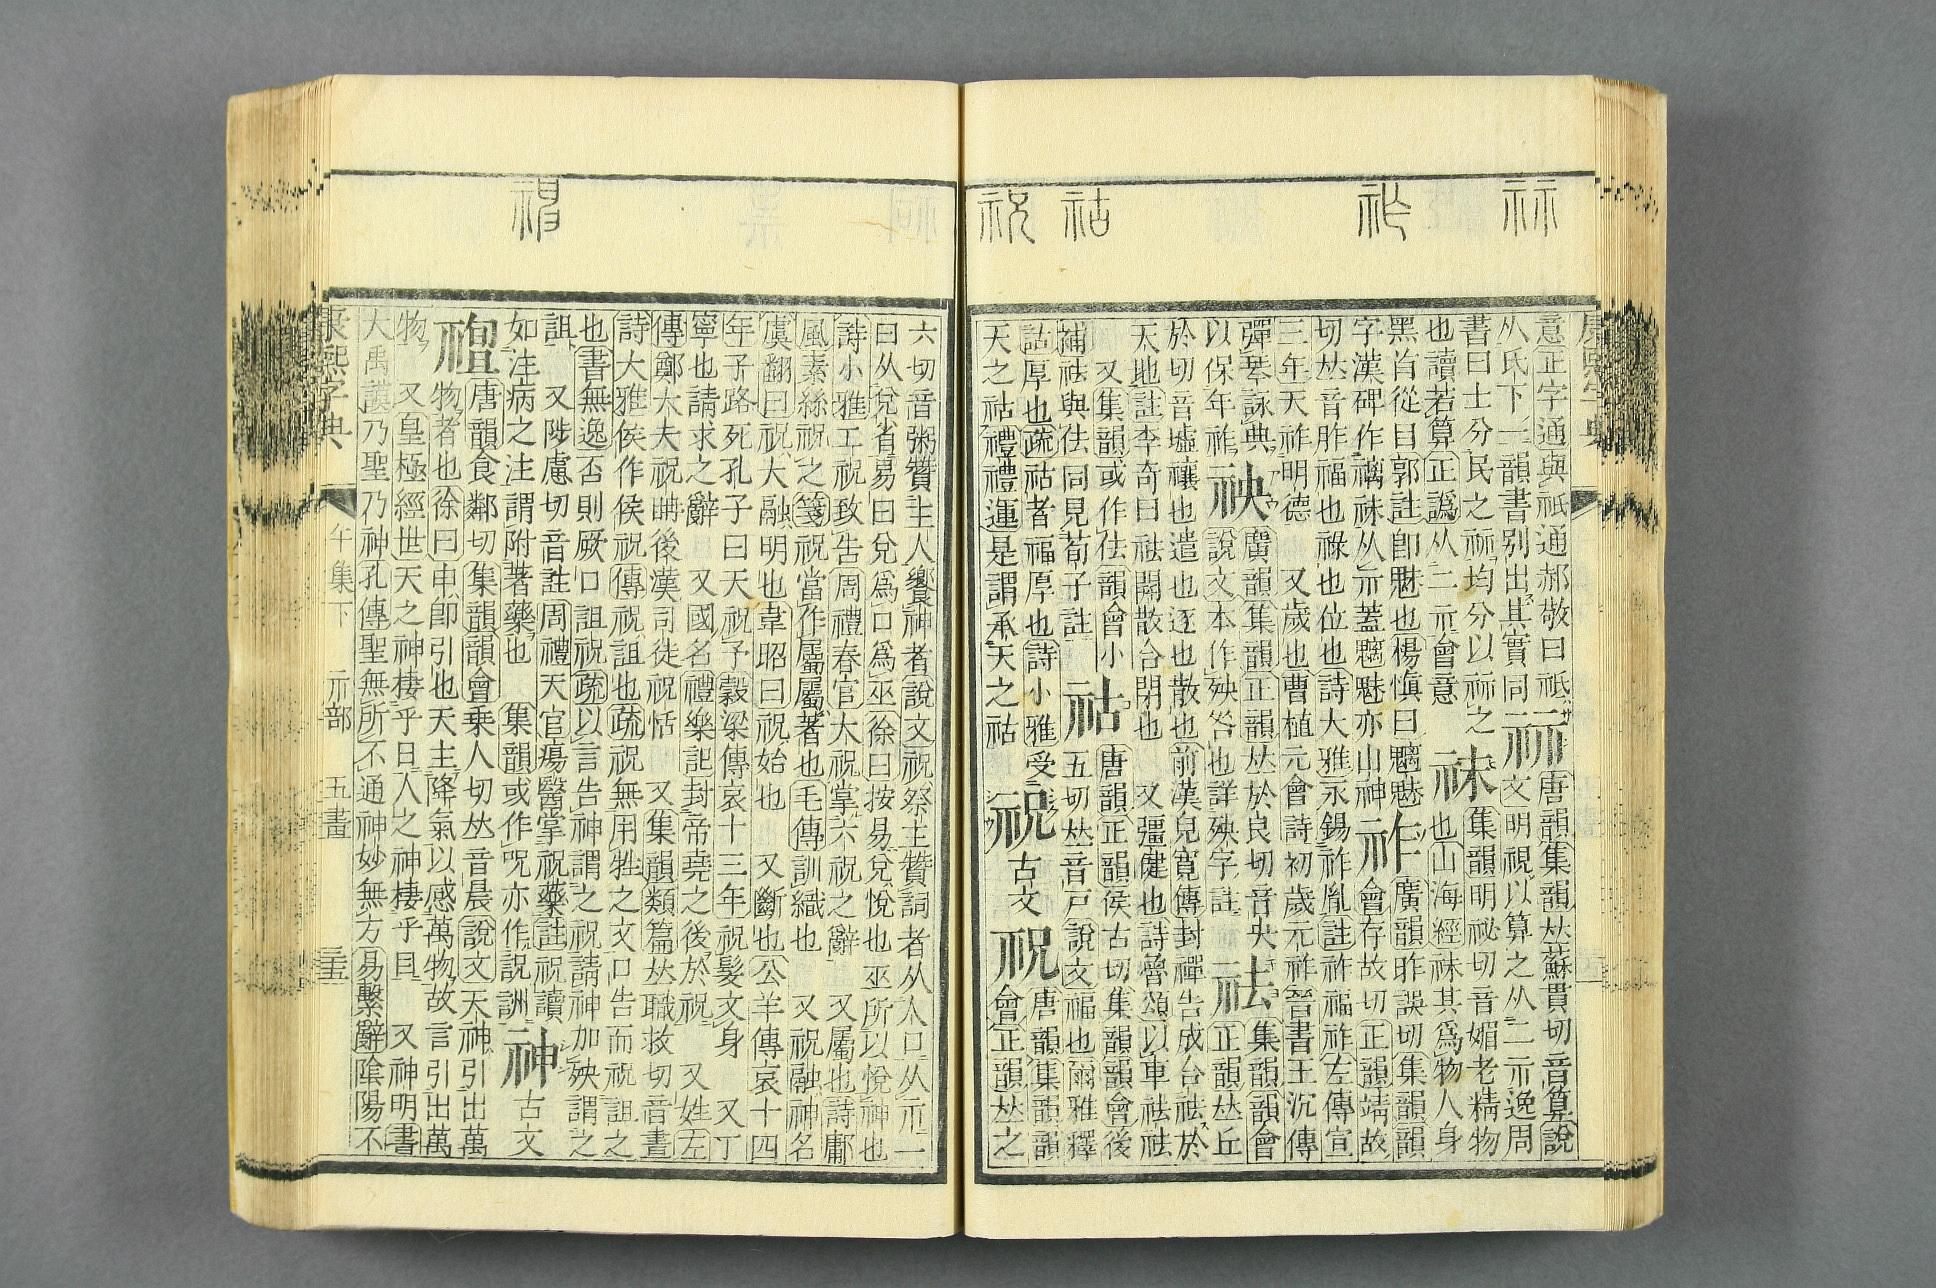 祘 祚 祜 祝
康熙字典
意正字通與祇通郝敬曰祇 祘 唐韻集韻𠀤蘇貫切音算說
从氏下一韻書別出其實同 文明視以算之从二示逸周
書曰士分民之祘均分以祘之 祙 集韻明祕切音媚老精物
也讀若算正譌从二示會意 也山海經祙其爲物人身
黑首從目郭註卽魅也楊愼曰魑魅 祚 廣韻昨誤切集韻韻
字漢碑作禼祙从示蓋魑魅亦山神 會存故切正韻靖故
切𠀤音胙福也祿也位也詩大雅永錫祚胤註祚福祚左傳宣
三年天祚明德 又歲也曹植元會詩初歲元祚晉書王沉傳
彈琴詠典 䄃 廣韻集韻正韻𠀤於良切音央 祛 集韻韻會
以保年祚 說文本作殃咎也詳殃字註 正韻𠀤丘
於切音墟禳也遣也逐也散也前漢兒寬傳封禪告成合祛於
天地註李奇曰祛開散合閉也 又彊健也詩魯頌以車祛祛
又集韻或作佉韻會小 祜 唐韻正韻侯古切集韻韻會後
補祛與佉同見荀子註 五切𠀤音戸說文福也爾雅釋
詁厚也疏祜者福厚也詩小雅受 祝 古文 祝 唐韻集韻韻
天之祜禮禮運是謂承天之祜 會正韻𠀤之
六切音粥贊主人饗神者說文祝祭主贊詞者从人口从示一
曰从兌省易曰兌爲口爲巫徐曰按易兌悅也巫所以悅神也
詩小雅工祝致告周禮春官大祝掌六祝之辭 又屬也詩鄘
風素絲祝之箋祝當作屬屬著也毛傳訓織也 又祝融神名
虞翻曰祝大融明也韋昭曰祝始也 又斷也公羊傳哀十四
年子路死孔子曰天祝予穀梁傳哀十三年祝髮文身 又丁
寧也請求之辭 又國名禮樂記封帝堯之後於祝 又姓左
傳鄭大夫祝聃後漢司徒祝恬 又集韻類篇𠀤職救切音晝
詩大雅侯作侯祝傳祝詛也疏祝無用牲之文口告而祝詛之
也書無逸否則厥口詛祝疏以言告神謂之祝請神加殃謂之
詛 又陟慮切音註周禮天官瘍醫掌祝藥註祝讀
如注病之注謂附著藥也 集韻或作呪亦作詋詶 神 古文
䰠 唐韻食鄰切集韻韻會乗人切𠀤音晨說文天神引出萬
物者也徐曰申卽引也天主降氣以感萬物故言引出萬
物 又皇極經世天之神棲乎日人之神棲乎目 又神明書
大禹謨乃聖乃神孔傳聖無所不通神妙無方易繫辭隂陽不
康熙字典 午集下 示部 五畫